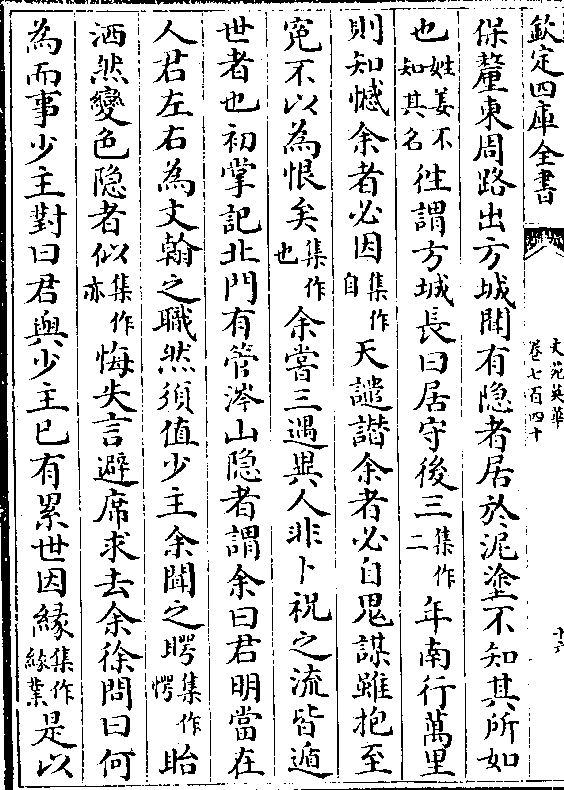 欽定四庫全書
文苑英華
卷七百四十
十六
保釐東周路出方城聞有隐者居於泥塗不知其所如
也姓姜不知其名徃謂方城長曰居守後三集作二年南行萬里
則知憾余者必因集作自天譴譖余者必自鬼謀雖抱至
寃不以為恨矣集作也余嘗三遇異人非卜祝之流皆遁
世者也初掌記北門有管涔山隐者謂余曰君明當在
人君左右為文翰之職然須值少主余聞之㬸集作愕眙
洒然變色隐者似集作亦悔失言避席求去余徐問曰何
為而事少主對曰君與少主已有累世因緣集作緣業是以